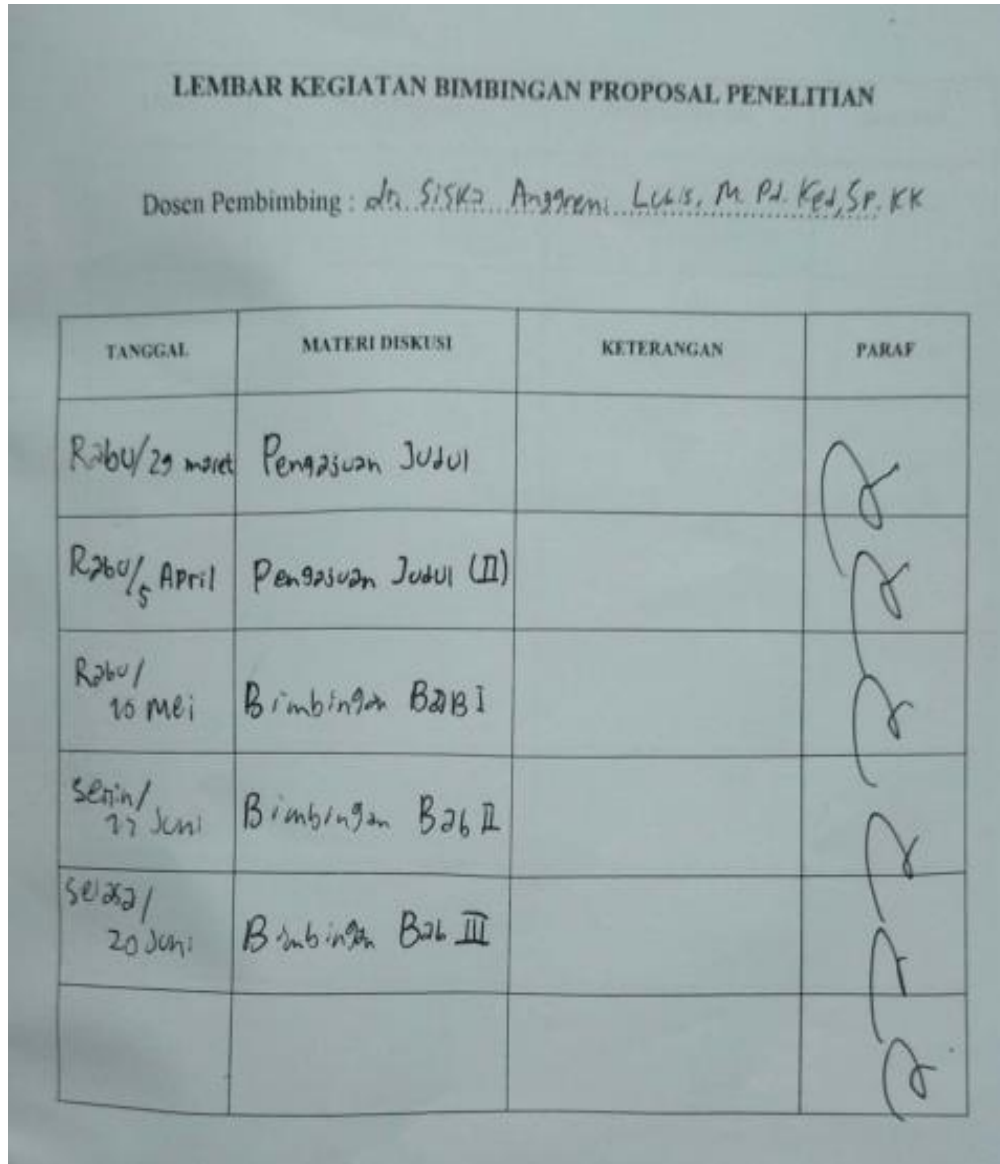 LEMBAR KEGIATAN BIMBINGAN PROPOSAL PENELITIAN
Dosen Pembimbing : dr. Siska Anggreni Lubis, M. Pd. Ked, Sp. KK
TANGGAL MATERI DISKUSI KETERANGAN PARAF
Rabu/29 maret Pengajuan Judul
Rabu/5 April Pengajuan Judul (II)
Rabu/
10 Mei Bimbingan BaB I
Senin/
Juni Bimbingan Bab II
Selasa/
20 Juni Bimbingan Bab III